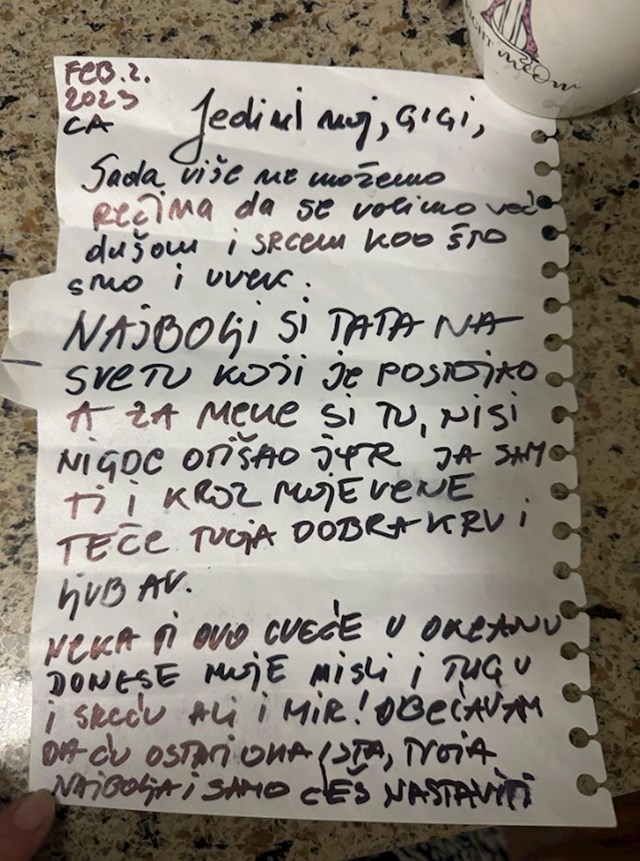 FEB. 2.
2023
CA
Jedini moj, GIGI,
Sada više ne možemo
REČIMA da se volimo već
dušom i SRCEM KAO ŠTO
smo i uvek.
NAJBOLJI SI TATA NA
SVETU KOJI je POSTOJAO
A ZA MENE SI TU, NISI
NIGDE OTIŠAO JER JA SAM
TI i KROZ MOJE VENE
TEČE TVOJA DOBRA KRV i
LJUBAV.
NEKA TI OVO CVEĆE U OKEANU
DONESE MOJE MISLI i TUGU
i SREĆU ALI i MIR! OBEĆAVAM
DA ĆU OSTATI ONA ISTA, TVOJA
NAJBOLJA i SAMO ĆEŠ NASTAVITI
meow